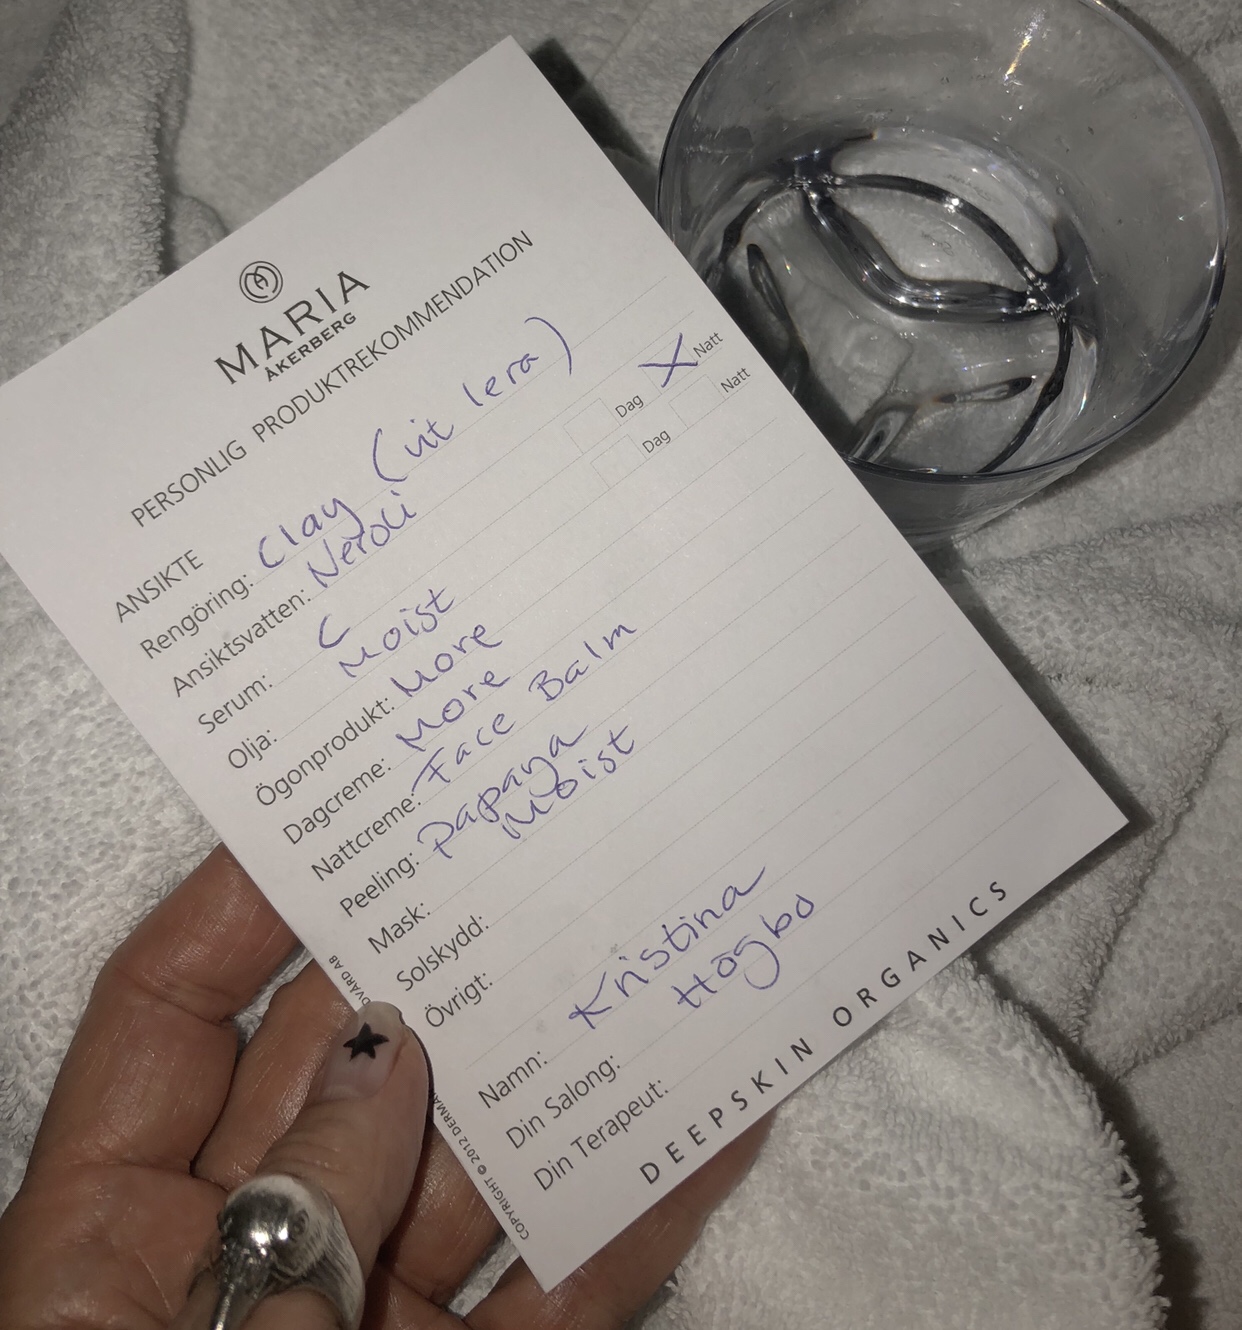 MARIA
ÅKERBERG
PERSONLIG PRODUKTREKOMMENDATION
ANSIKTE
Rengöring: Clay (vit lera)
Ansiktsvatten: Neroli
Serum: C Dag X Natt
Olja: Moist Dag Natt
Ögonprodukt: More
Dagcreme: More
Nattcreme: Face Balm
Peeling: Papaya
Mask: Moist
Solskydd:
Övrigt:
Namn: Kristina
Din Salong: Högbo
Din Terapeut:
DEEPSKIN ORGANICS
COPYRIGHT © 2012 DERMA
DVÅRD AB